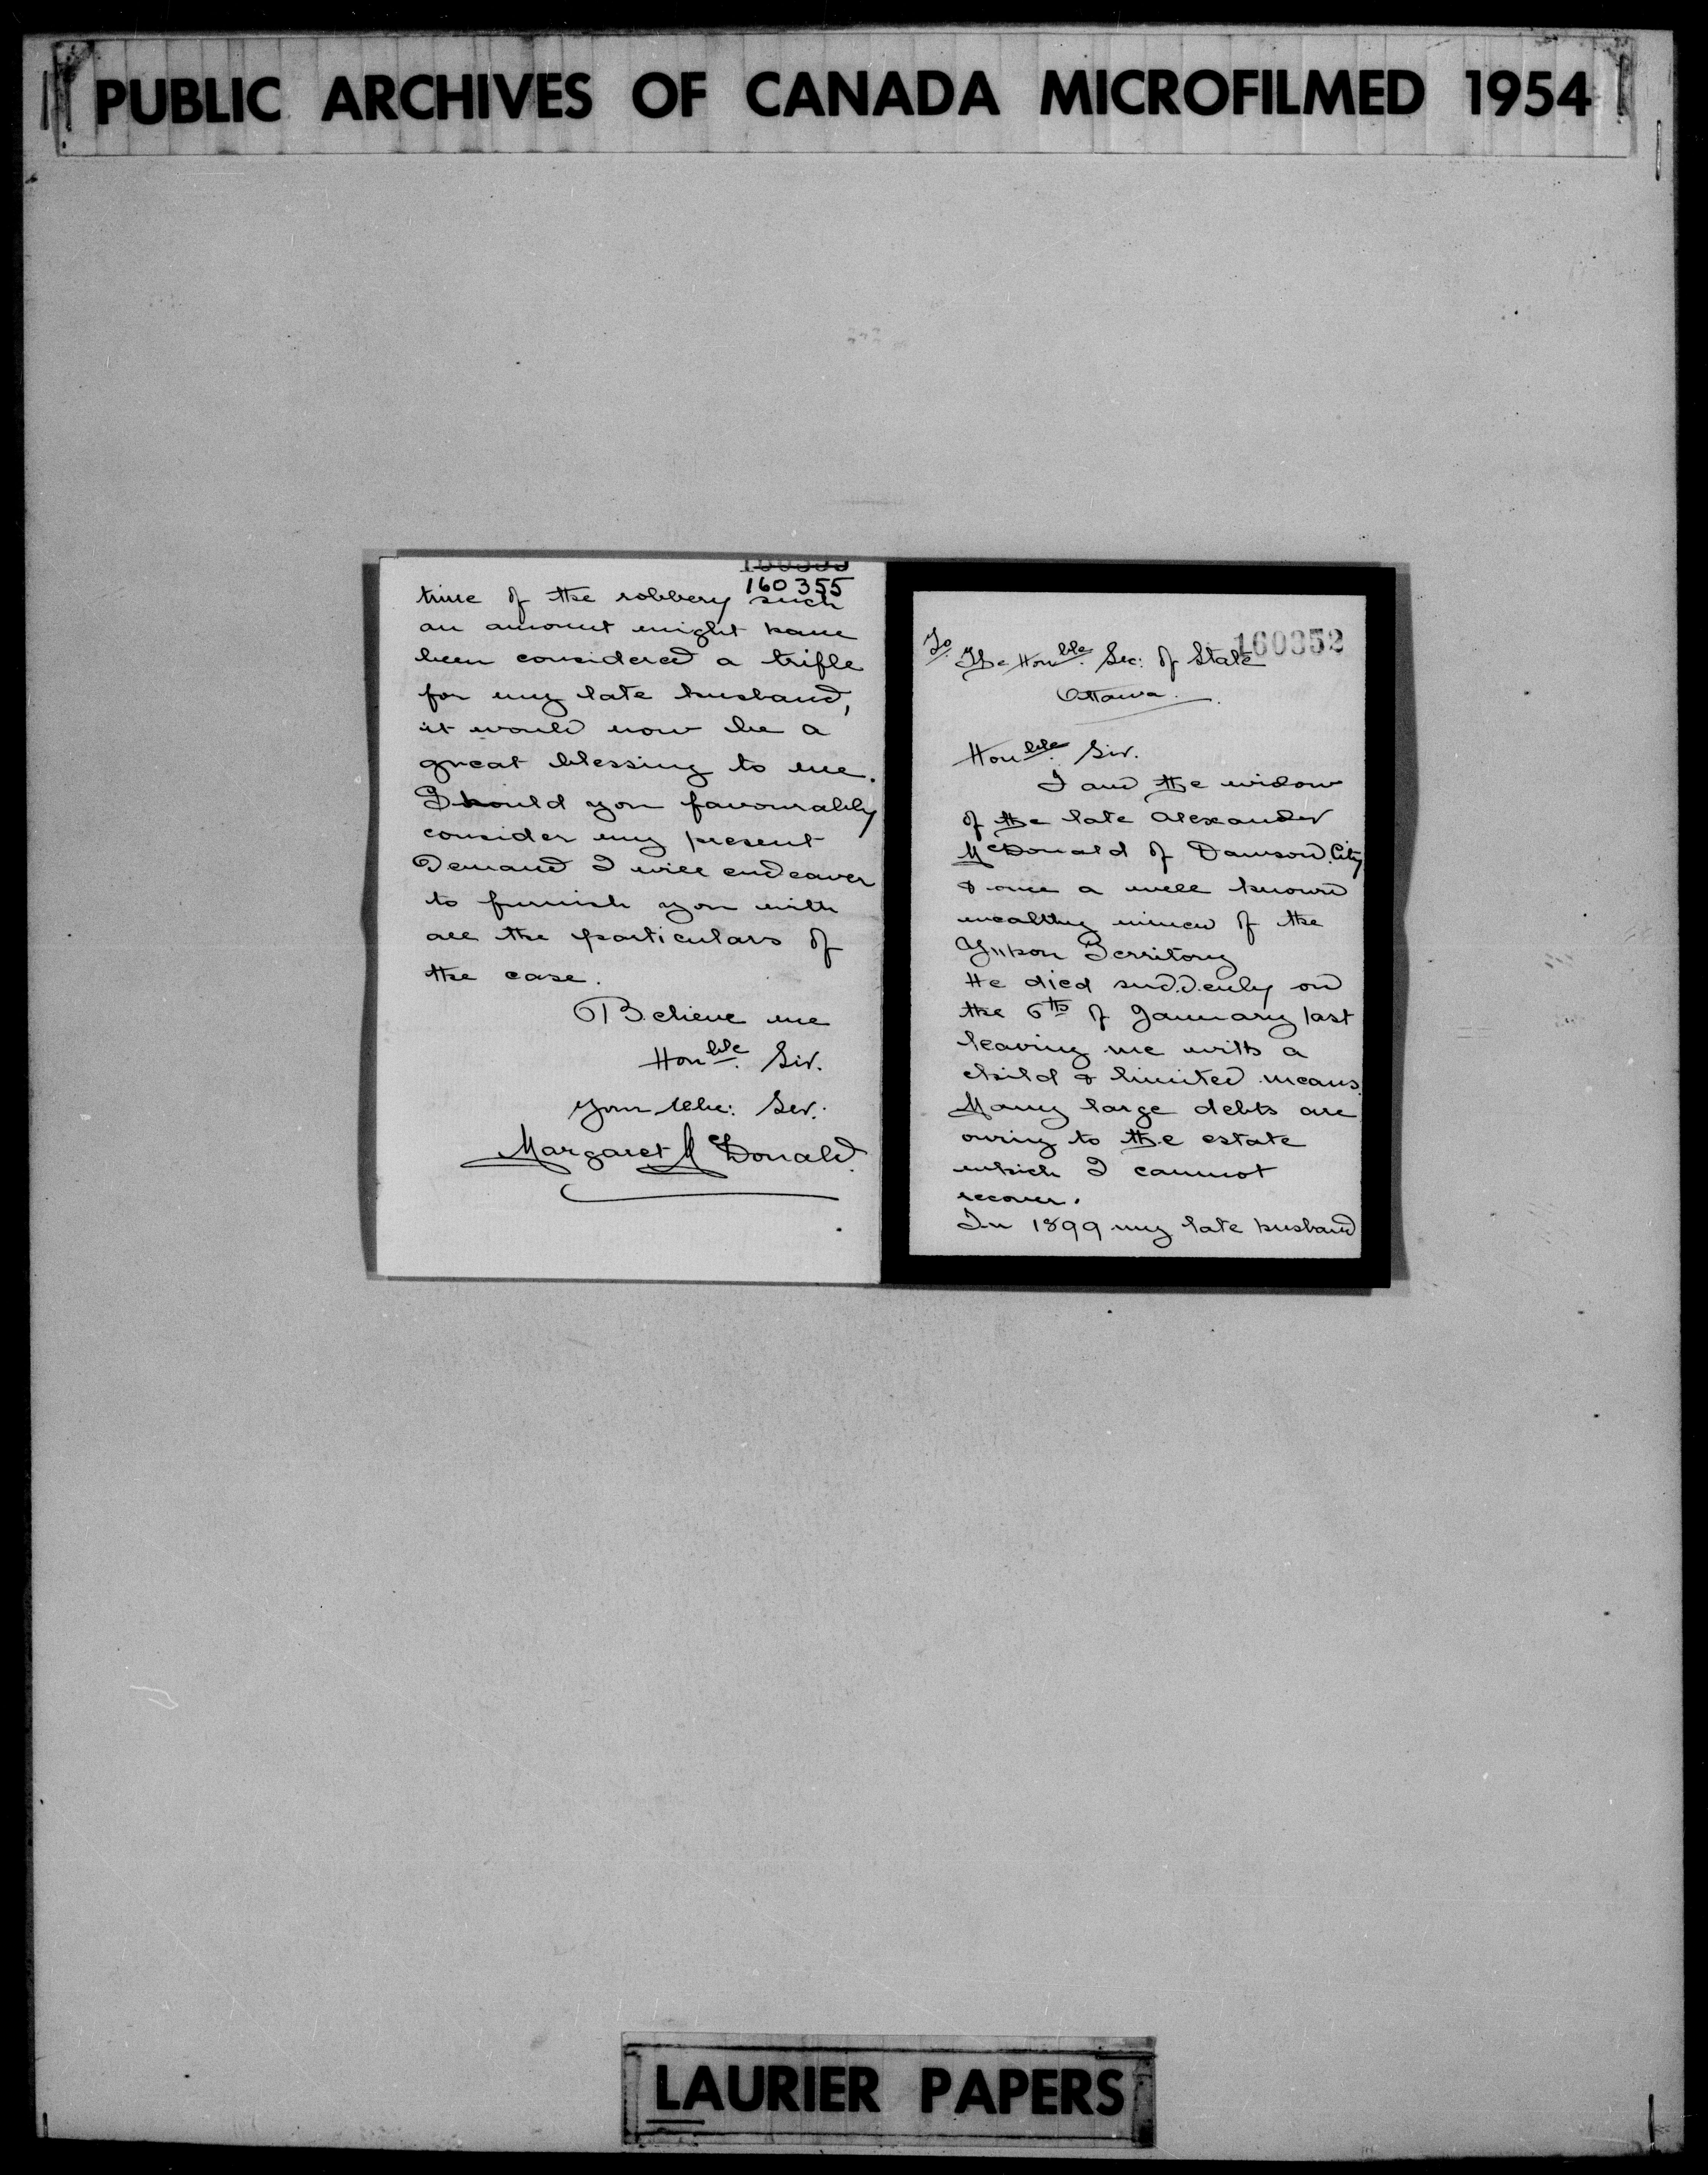 PUBLIC ARCHIVES OF CANADA MICROFILMED 1954
160355
time of the robbery such
an amount might have
been considered a trifle
for my late husband,
it would now be a
great blessing to me.
Should you favourably
consider my present
Demand I will endeaver
to furnish you with
all the particulars of
the case.
Believe me
Honble. Sir.
Your Obe: Ser:
Margaret McDonald.
160352
To
The Honble. Sec: of State
Ottawa.
Honble. Sir.
I am the widow
of the late Alexander
McDonald of Dawson City
& once a well known
wealthy miner of the
Yukon Territory
He died suddenly on
the 6th of January last
leaving me with a
child & limited means.
Many large debts are
owing to the estate
which I cannot
recover.
In 1899 my late husband
LAURIER PAPERS